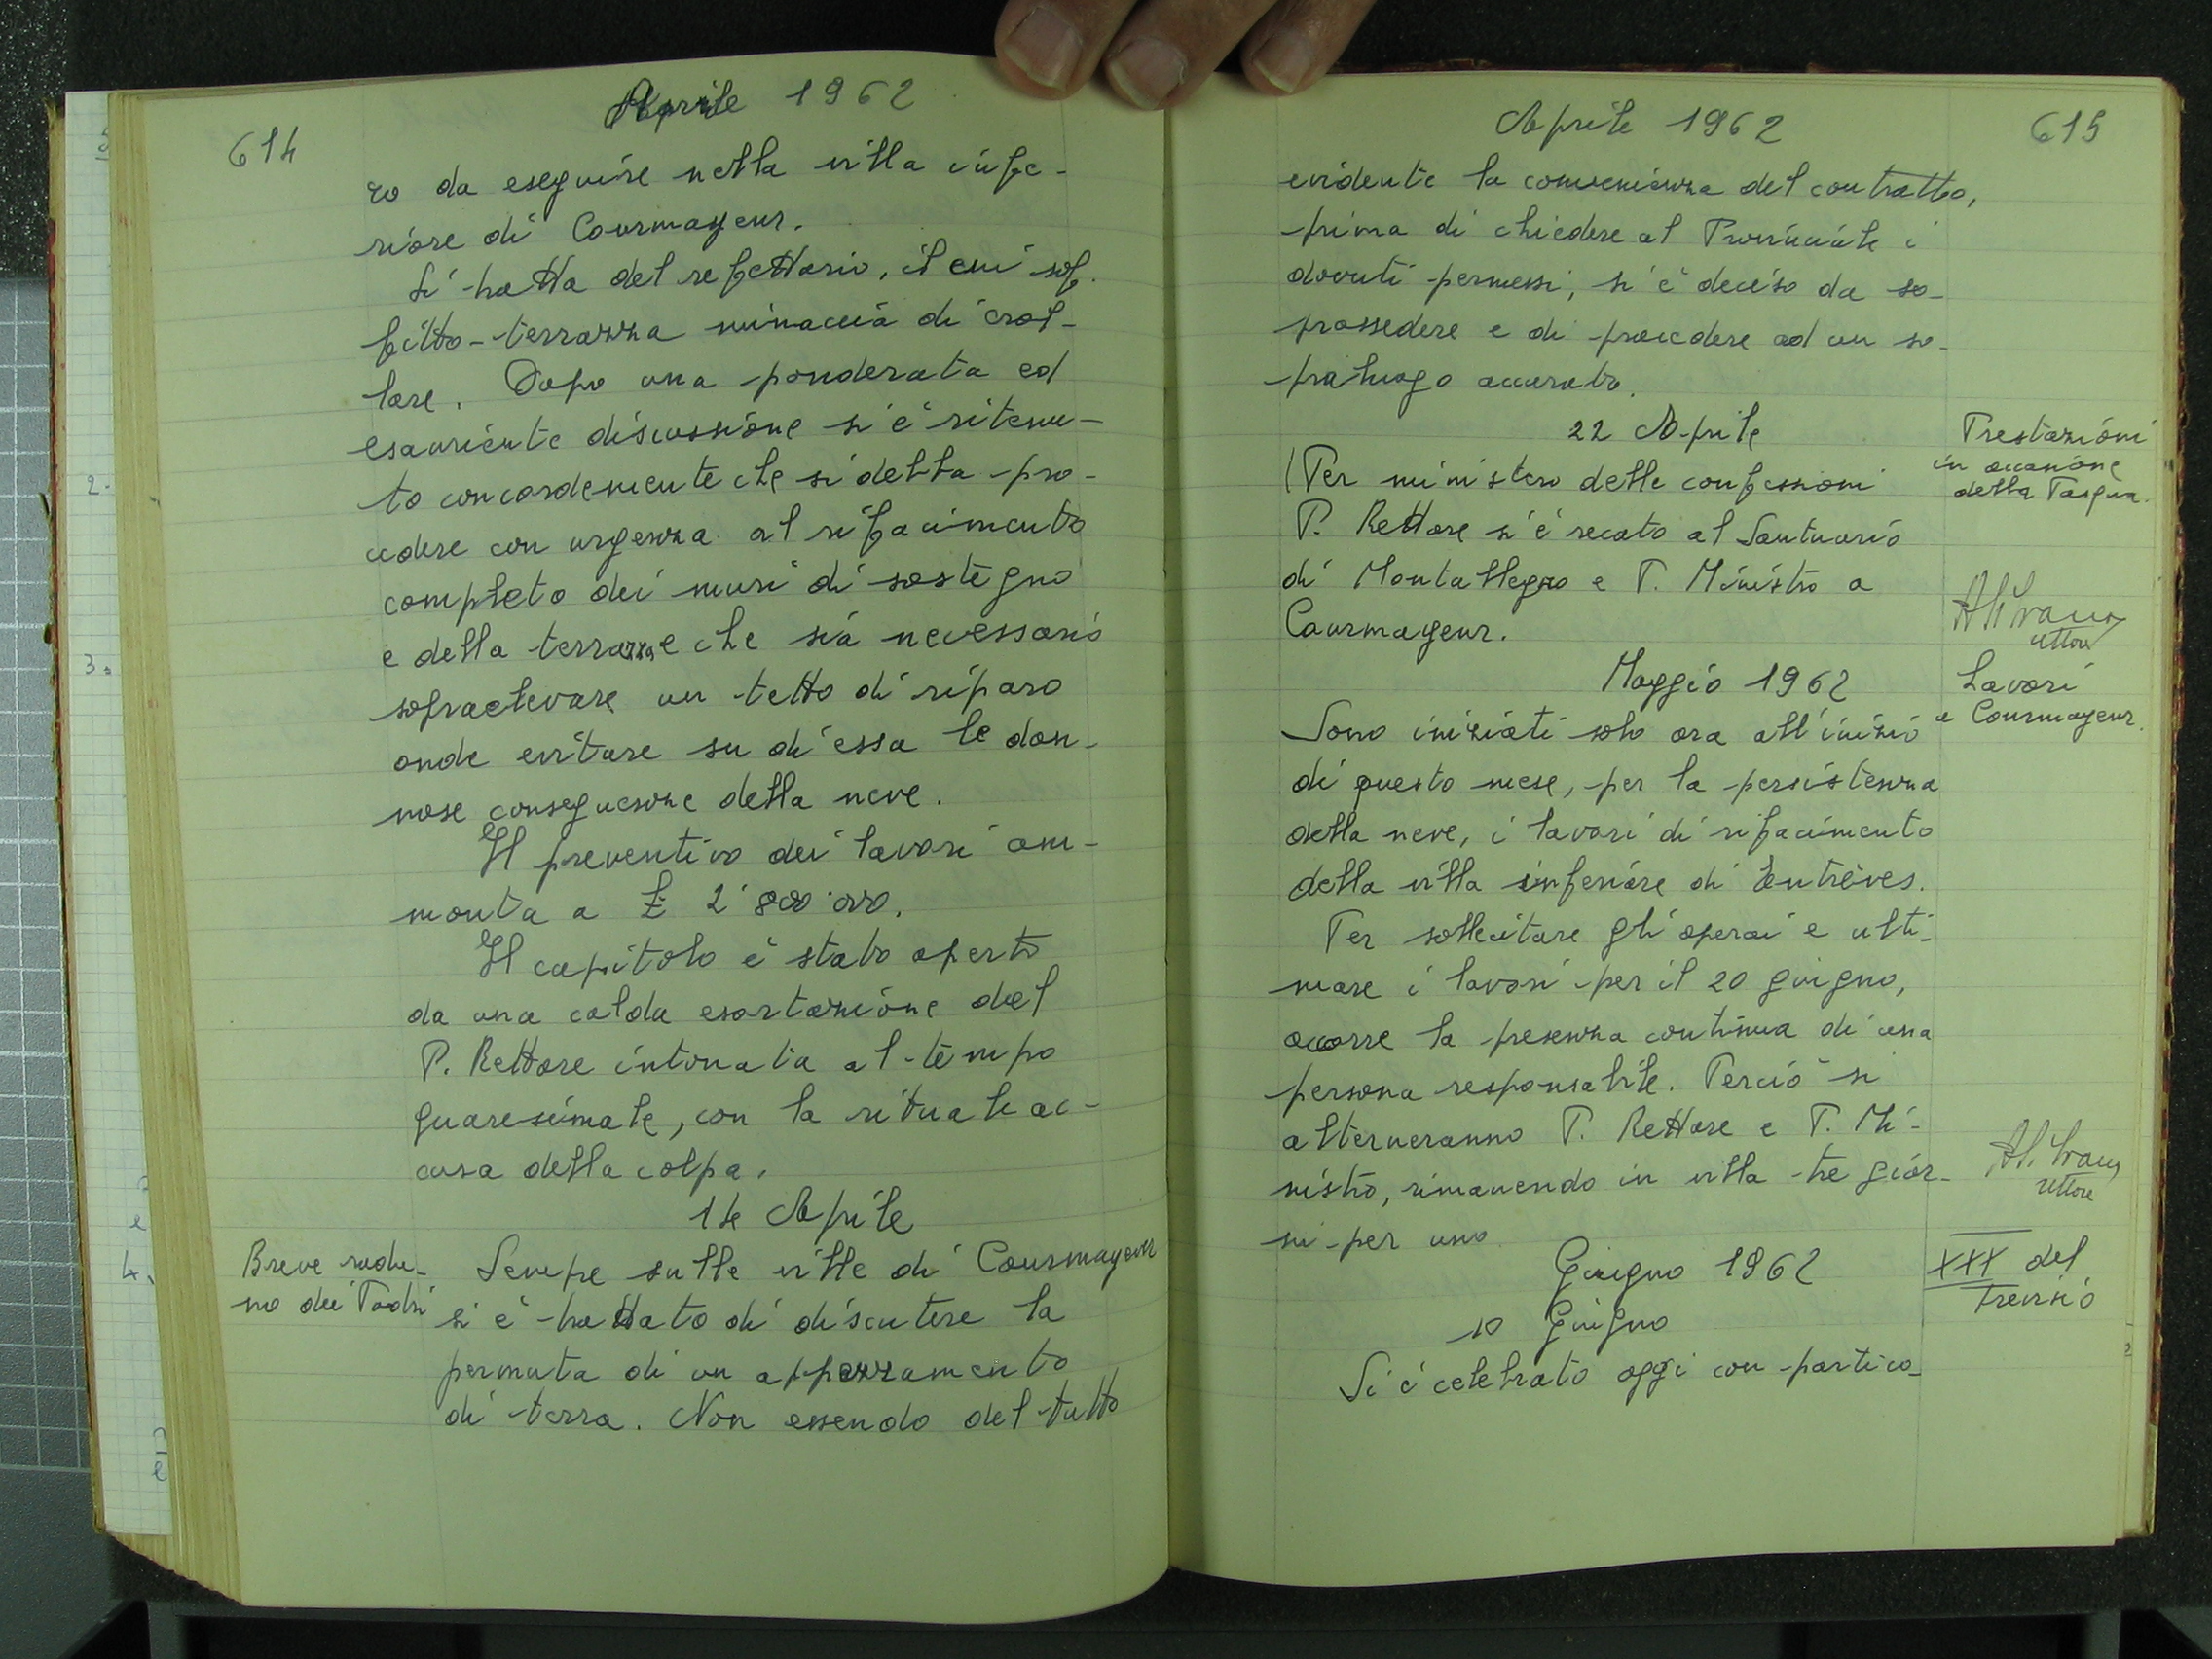 Aprile 1962
614
ro da eseguire nella villa infe-
riore di Courmayeur.
Si tratta del refettorio, il cui sof-
fitto-terrazza minaccia di crol-
lare. Dopo una ponderata ed
esauriente discussione si è ritenu-
to concordemente che si debba pro-
cedere con urgenza al rifacimento
completo dei muri di sostegno
e della terrazza e che sia necessario
sopraelevare un tetto di riparo
onde evitare su di essa le dan-
nose conseguenze della neve.
Il preventivo dei lavori am-
monta a £ 2'800'000.
Il capitolo è stato aperto
da una calda esortazione del
P. Rettore intonata al tempo
quaresimale, con la rituale ac-
cusa della colpa.
14 Aprile
Breve radu-
no dei Padri
Sempe sulle ville di Courmayeur
si è trattato di discutere la
permuta di un appezzamento
di terra. Non essendo del tutto
Aprile 1962
615
evidente la convenienza del contratto,
prima di chiedere al Provinciale i
dovuti permessi, si è deciso da so-
prassedere e di procedere ad un so-
praluogo accurato.
22 Aprile
Prestazioni
in occasione
della Pasqua.
Per ministero delle confessioni
P. Rettore si è recato al Santuario
di Montallegro e P. Ministro a
Courmayeur.
rettore
Maggio 1962
Lavori
a Courmayeur.
Sono iniziati solo ora all'inizio
di questo mese, per la persistenza
della neve, i lavori di rifacimento
della villa inferiore di Entrèves.
Per sollecitare gli operai e ulti-
mare i lavori per il 20 giugno,
occorre la presenza continua di una
persona responsabile. Perciò si
alterneranno P. Rettore e P. Mi-
nistro, rimanendo in villa tre gior-
ni per uno
rettore
Giugno 1962
XXX del
10 Giugno
Si è celebrato oggi con partico-